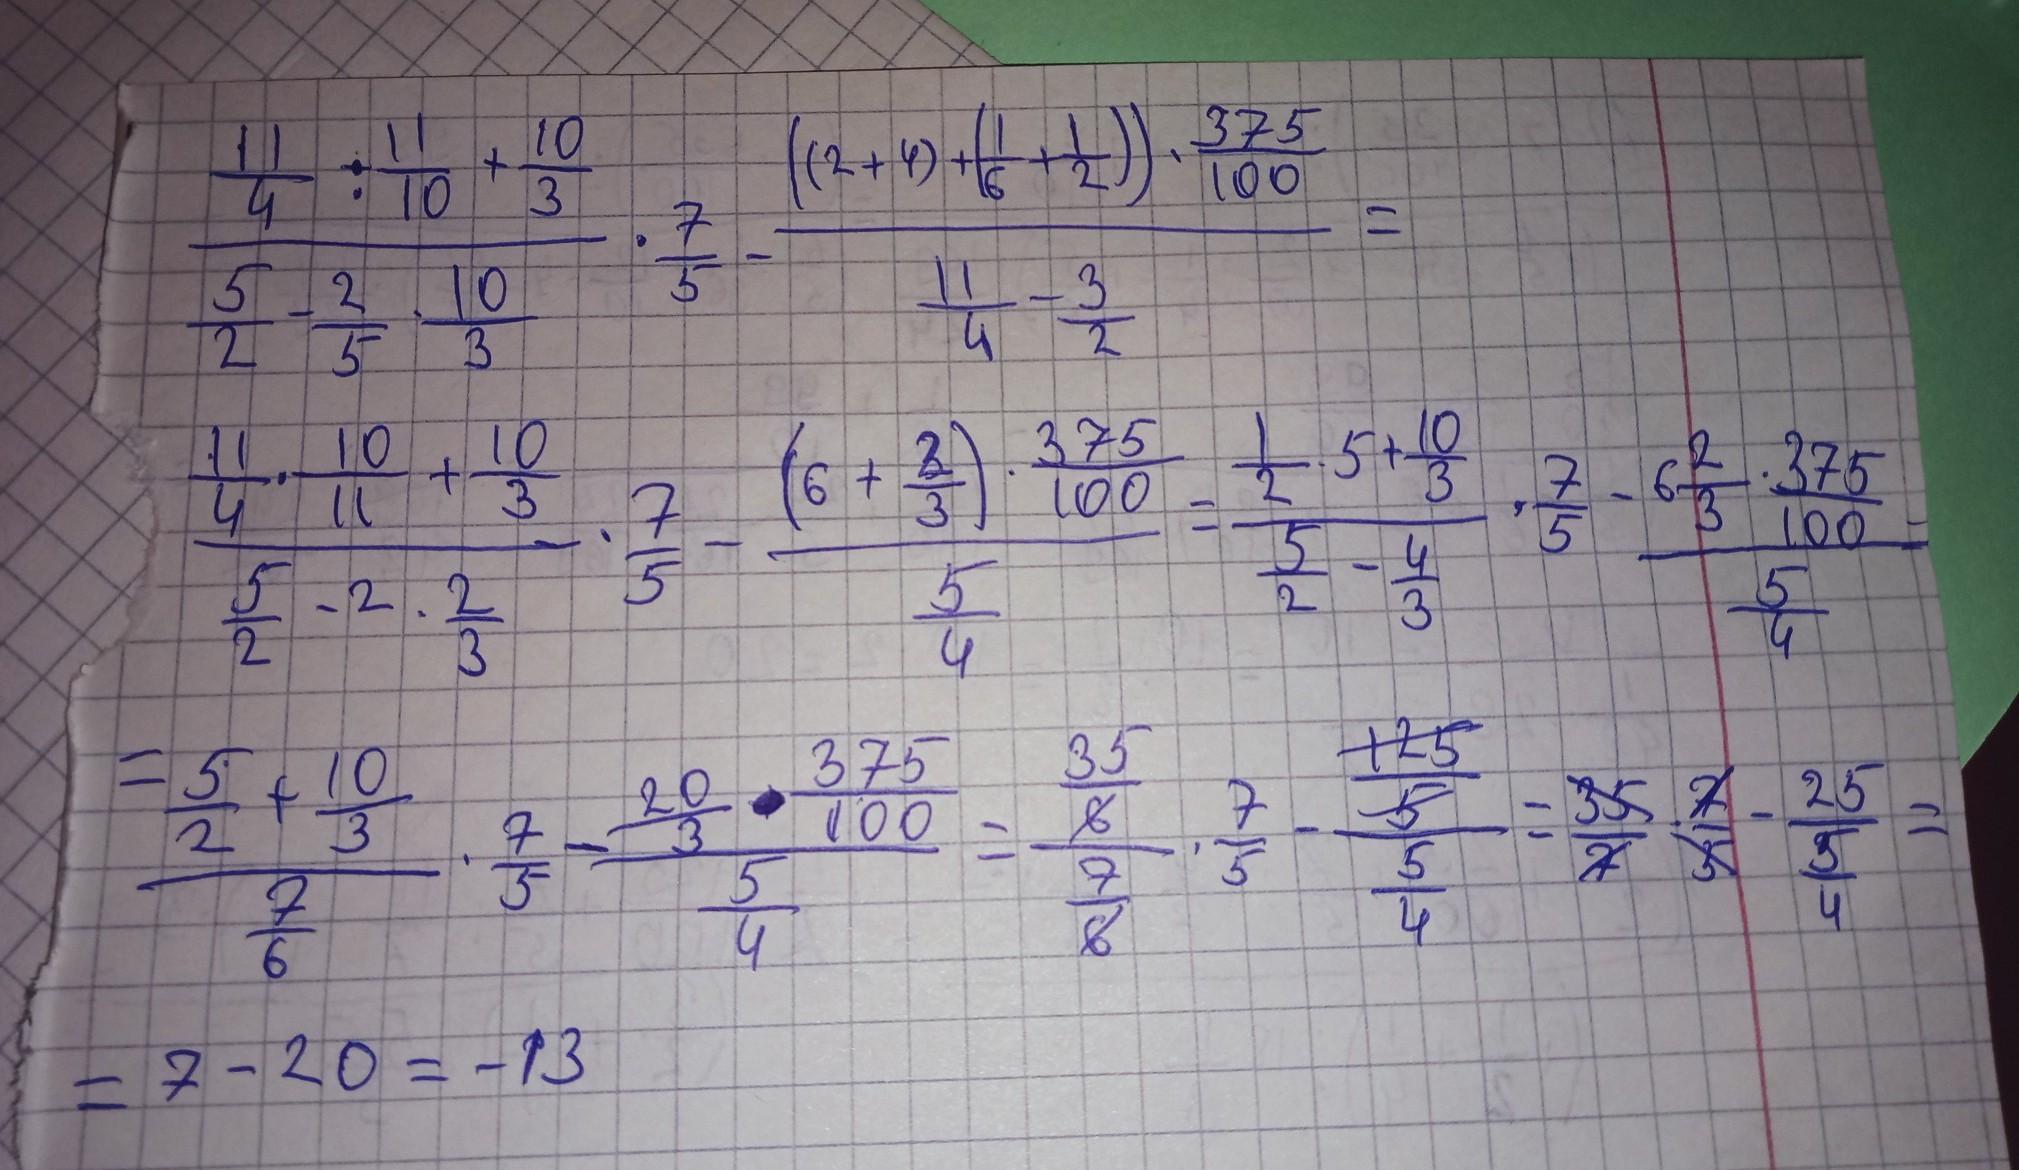 (11/4 : 11/10 + 10/3)/(5/2 - 2/5 · 10/3) · 7/5 - (((2+4)+(1/6+1/2)) · 375/100)/(11/4 - 3/2) =
(11/4 · 10/11 + 10/3)/(5/2 - 2 · 2/3) · 7/5 - ((6 + 2/3) · 375/100)/(5/4) = (1/2 · 5 + 10/3)/(5/2 - 4/3) · 7/5 - (6 2/3 · 375/100)/(5/4) =
= (5/2 + 10/3)/(7/6) · 7/5 - (20/3 · 375/100)/(5/4) = (35/6)/(7/6) · 7/5 - (125/5)/(5/4) = 35/7 · 7/5 - 25/(5/4) =
= 7 - 20 = -13